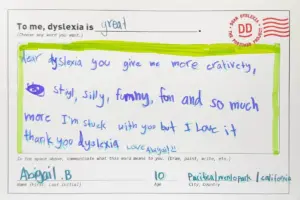 To me, dyslexia is great.
(Choose any word you want.)
DEAR DYSLEXIA
DD
THE POSTCARD PROJECT
dear dyslexia you give me more crativety,
styl, silly, fumny, fon and so much
more I'm stuck with you but I love it
thank you dyslexia Love Abigail!!
In the space above, communicate what this word means to you. (Draw, paint, write, etc.)
Abigail.B
10
california
Name (First, Last Initial)
Age
City, Country